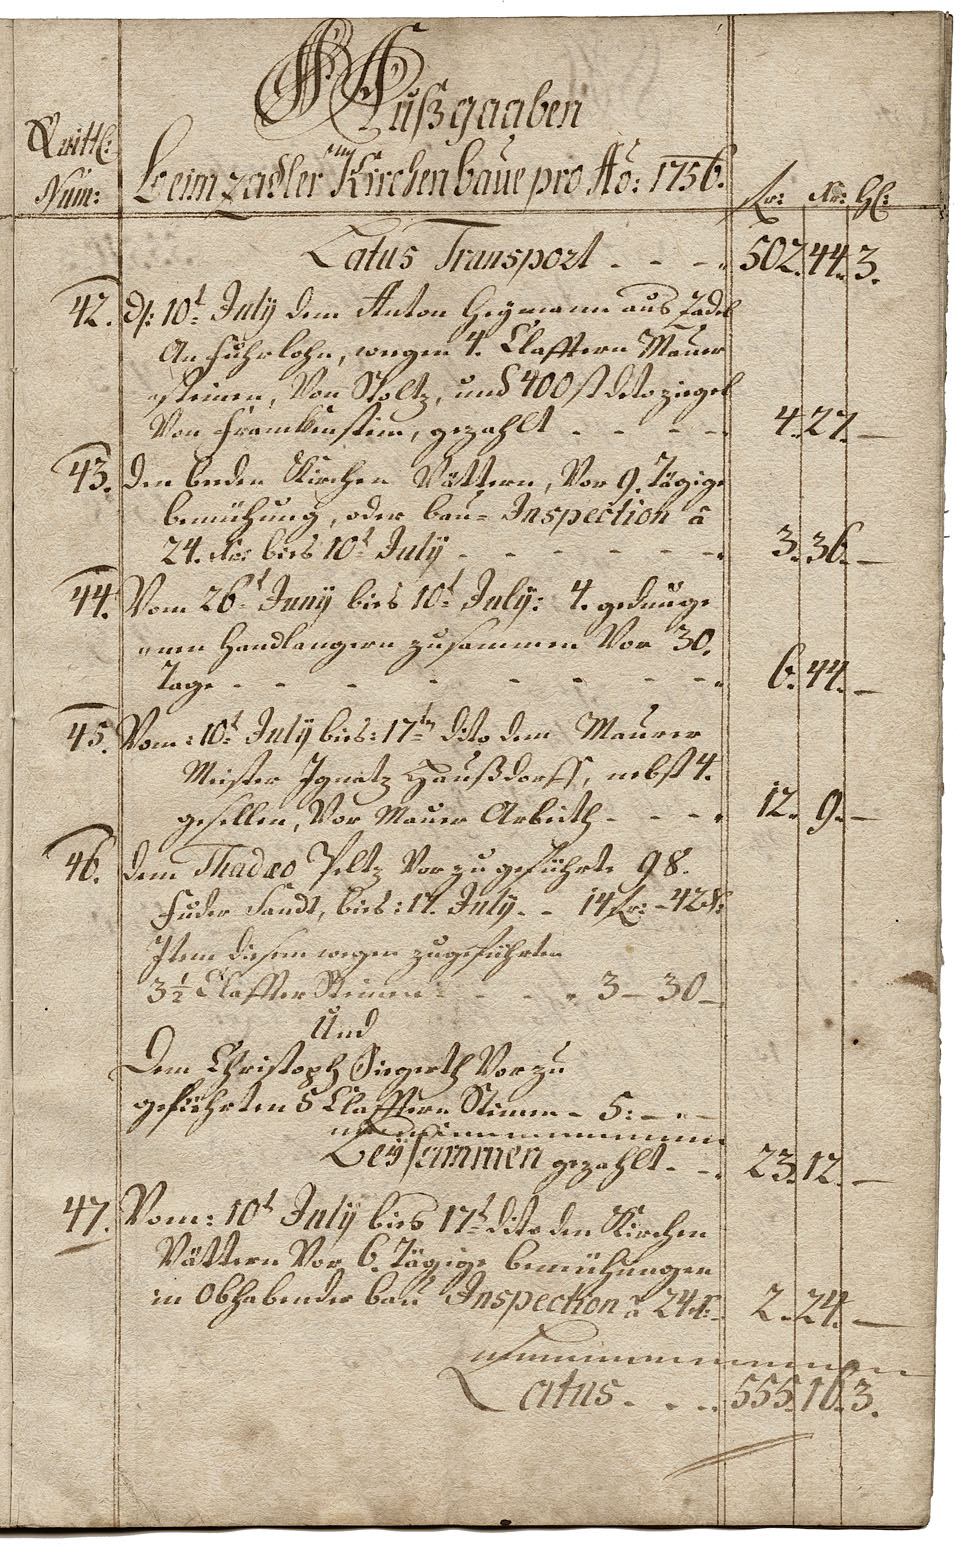 Außgaaben
Quitt:
Num:
beim zadler Kirchenbaue pro Aõ: 1756.
fr: Kr: Hl:
Latus Transport - - - 502. 44. 3.
42. d: 10t July dem Anton Heymann aus Zadel
An Fuhrlohn, wegen 4. Clafftern Mauer
steinen, Von Stoltz, und 400 st dito ziegel
Von Franckenstein, gezahlt - - - - 4. 27. —
43. den beeden Kirchen Vättern, Vor 9. Tägige
bemühung, oder bau- Inspection â
24. Kr: bies 10t July - - - - - - - 3. 36. —
44. Vom 26t Juny bies 10t July: 4. gedunge
nen Handlangern zusammen Vor 30.
Tage - - - - - - - - 6. 44. —
45. Vom: 10t July bies: 17tn dito dem Maurer
Meister Ignatz Haußdorff, nebst 4.
gesellen, Vor Mauer Arbeith - - - - 12. 9. —
46. dem Thadæo Peltz Vor zugeführte 98.
Fuder Sandt, bies: 17. July - - 14 fr: - 42 Kr:
Item diesem wegen zugeführten
3½ Claffter Steinen: - - - 3 — 30 —
Und
Dem Christoph Siegerth Vor zu
geführten 5 Clafftern Steinen - 5: — — —
Beysammen gezahlt - - 23. 12. —
47. Vom: 10t July bies 17t dito den Kirchen
Vättern Vor 6. Tägige bemühungen
in Obhabender bau Inspection â 24 Kr: 2. 24. —
Latus - - - 555. 16. 3.